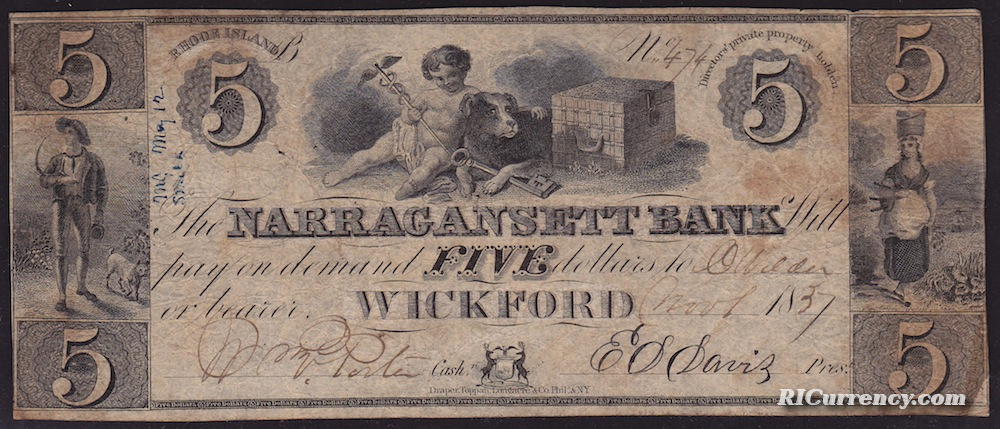 Five Dollars Five Dollars Five Dollars Five Dollars Five Dollars Five Dollars
5 5
RHODE ISLAND B No. 474 Directors' private property holden
5 5
The NARRAGANSETT BANK Will
pay on demand FIVE dollars to
or bearer. WICKFORD 1837
Porter Cashr. E S Davis Pres.
Draper, Toppan, Longacre & Co. Phila. & N.Y.
5 5
Five Dollars Five Dollars Five Dollars Five Dollars Five Dollars Five Dollars
RICurrency.com